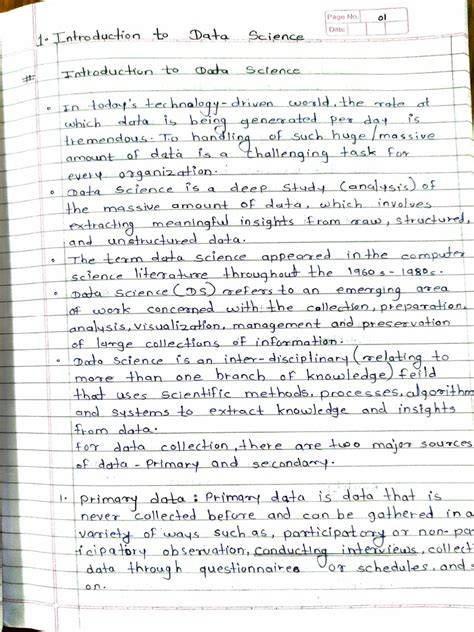 Page No. 01
Date
1. Introduction to Data Science
# Introduction to Data Science
• In today's technology-driven world, the rate at
which data is being generated per day is
tremendous. To handling of such huge/massive
amount of data is a challenging task for
every organization.
• Data Science is a deep study (analysis) of
the massive amount of data, which involves
extracting meaningful insights from raw, structured,
and unstructured data.
• The term data science appeared in the computer
science literature throughout the 1960s - 1980s.
• Data Science (DS) refers to an emerging area
of work concerned with the collection, preparation,
analysis, visualization, management and preservation
of large collections of information.
• Data Science is an inter-disciplinary (relating to
more than one branch of knowledge) feild
that uses scientific methods, processes, algorithm
and systems to extract knowledge and insights
from data.
For data collection, there are two major sources
of data - Primary and secondary.
1. Primary data : Primary data is data that is
never collected before and can be gathered in a
variety of ways such as, participatory or non-par
icipatory observation, conducting interviews, collecti
data through questionnaires or schedules, and s
on.